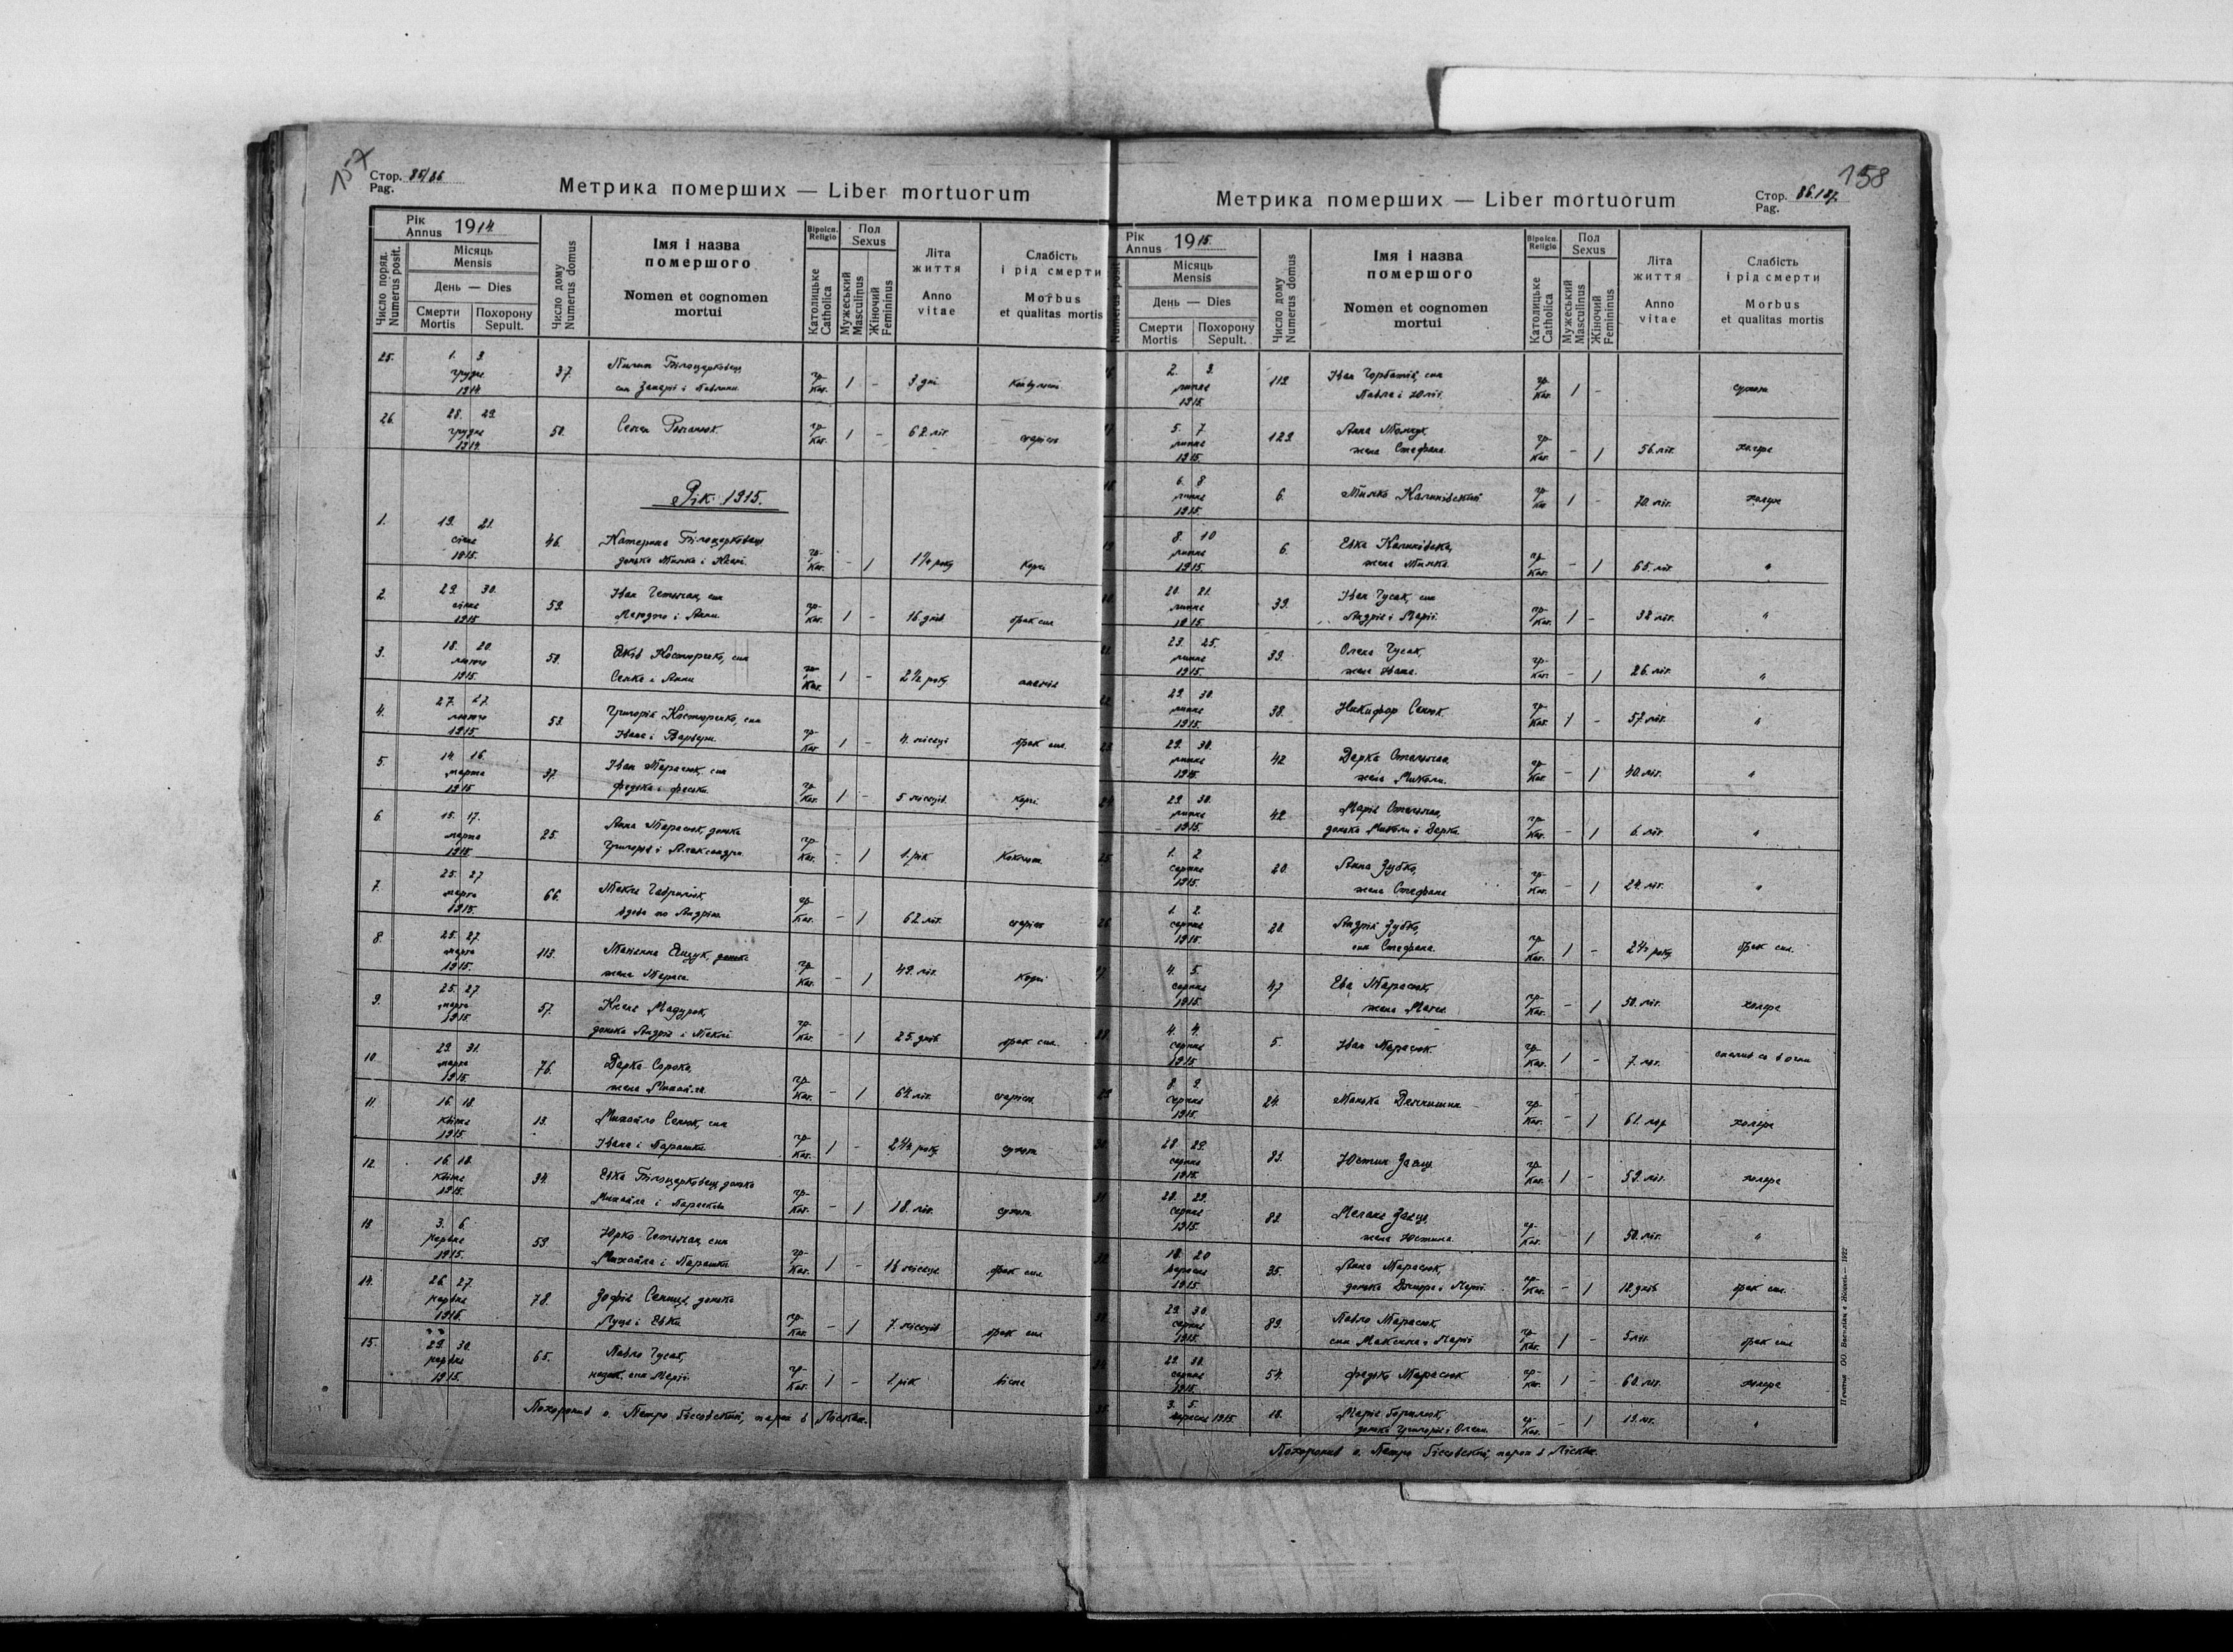 157
Стор. 85/86
Pag.
Метрика померших — Liber mortuorum
Рік
Annus 1914
Число поряд.
Numerus posit.
Місяць
Mensis
День — Dies
Смерти
Mortis
Похорону
Sepult.
Число дому
Numerus domus
Імя і назва
помершого
Nomen et cognomen
mortui
Віроісп.
Religio
Католицьке
Catholica
Пол
Sexus
Мужеський
Masculinus
Жіночий
Femininus
Літа
життя
Anno
vitae
Слабість
і рід смерти
Morbus
et qualitas mortis
25. 1. 3. грудня 1914 37. Білоцерковець
син Захарія і Павлини гр. Кат. 1 - 3 дні
26. 28. 29. грудня 1914. 50. Семен Романюк гр. Кат. 1 - 62 літ старість
Рік 1915.
1. 19. 21. січня 1915. 46. Катерина Білоцерковець
донька Тимка і гр. Кат. - 1 1½ року Корчі
2. 29. 30. січня 1915 59. Іван син
і Анни гр. Кат. 1 - 16 днів брак сил
3. 18. 20. лютого 1915. 53. Яків Костюрко, син
Сенка і Анни гр. Кат. 1 - 2½ року
4. 27. 27. лютого 1915 53. Григорій Костюрко, син
Івана і Варвари гр. Кат 1 - 4. місяці брак сил
5. 14. 16. марта 1915 37. Іван Тарасюк, син
Федька і Феськи гр. Кат. 1 - 5 місяців Корчі
6. 15. 17. марта 1915 25. Анна Тарасюк, донька
Григорія і Александри гр. Кат. - 1 1. рік Коклюш
7. 25. 27 марта 1915. 66. Текля Гаврилюк,
вдова по Андрію гр. Кат. - 1 62 літ. старість
8. 25. 27. марта 1915. 113. Яндук, донька
жена Тараса гр. Кат. - 1 49. літ. Корчі
9. 25. 27 марта 1915. 57. Мадурок,
донька Андрія і Теклі гр. Кат. - 1 25. днів брак сил.
10. 29. 31. марта 1915. 76. Варка Сорока,
жена Михайла гр. Кат. - 1 64 літ. старість
11. 16. 18. Квітня 1915 13. Михайло Сенюк, син
Івана і Парашки гр. Кат. 1 - 2¼ року сухоти
12. 16. 18. Квітня 1915. 34 Евка Білоцерковець, донька
Михайла і Параскеви гр. Кат. - 1 18. літ. сухоти
13. 3. 6. червня 1915. 59 Юрко син
Михайла і Парашки гр. Кат. 1 - 18 місяців брак сил
14. 26. 27. червня 1915. 78. Зофія донька
Луця і Евки гр. Кат. - 1 7. місяців брак сил
15. 29. 30. червня 1915. 65. Павло Гусак,
син Марії гр. Кат. 1 - 1 рік віспа
Похоронив о. Петро парох в Лісках.
158
Стор. 86.187.
Pag.
Метрика померших — Liber mortuorum
Рік
Annus 1915.
Numerus posit.
Місяць
Mensis
День — Dies
Смерти
Mortis
Похорону
Sepult.
Число дому
Numerus domus
Імя і назва
помершого
Nomen et cognomen
mortui
Віроісп.
Religio
Католицьке
Catholica
Пол
Sexus
Мужеський
Masculinus
Жіночий
Femininus
Літа
життя
Anno
vitae
Слабість
і рід смерти
Morbus
et qualitas mortis
2. 3. липня 1915. 112. Іван Горбатів, син
Павла і Юлії. гр. Кат. 1 - сухоти
5. 7. липня 1915. 129. Анна
жена Стефана гр. Кат. - 1 56. літ. холера
6. 8 липня 1915. 6. Тимко Калинівский гр. Кат 1 - 70. літ. холера
8. 10 липня 1915. 6. Евка Калинівска,
жена Тимка. гр. Кат. - 1 65. літ "
20. 21. липня 1915. 39. Іван Гусак, син
Андрія і Марії. гр. Кат. 1 - 32 літ. "
23. 25. липня 1915. 39. Олена Гусак,
жена Івана. гр. Кат. - 1 26. літ. "
29. 30. липня 1915. 38. Никифор Сенюк гр. Кат. 1 - 57 літ. "
29. 30. липня 1915. 42 Варка
жена Миколи. гр. Кат - 1 40. літ. "
29. 30. липня 1915. 42. Марія
донька Миколи і Варки. гр. Кат. - 1 6. літ "
1. 2 серпня 1915. 20. Анна Зубко,
жена Стефана гр. Кат. - 1 24. літ. "
1. 2. серпня 1915. 20. Андрій Зубко,
син Стефана. гр. Кат. 1 - 2½ року брак сил.
4. 5. серпня 1915. 47 Ева Тарасюк,
жена гр. Кат. - 1 50. літ. холера
4. 4. серпня 1915 5. Іван Тарасюк. гр. Кат. 1 - 7. літ. спалив ся в огни
8. 9. серпня 1915. 24. Манька гр. Кат. - 1 61. літ холера
28. 29. серпня 1915. 83. Юстин Заяць гр. Кат. 1 - 59. літ. холера
28. 29. серпня 1915. 83. Мелана Заяць,
жена Юстина. гр. Кат. - 1 50. літ. "
18. 20 вересня 1915. 35. Анна Тарасюк,
донька Дмитра і Марії. гр. Кат. - 1 12. днів брак сил.
29. 30 серпня 1915 89. Павло Тарасюк,
син Максима і Марії гр. Кат. 1 - 5 літ. брак сил
29. 30. серпня 1915. 54. Федько Тарасюк гр. Кат. 1 - 60. літ. холера
3. 5. вересня 1915. 18. Марія Гаврилюк,
донька Григорія і Олени. гр. Кат. - 1 19. літ. "
Похоронив о. Петро парох в Лісках.